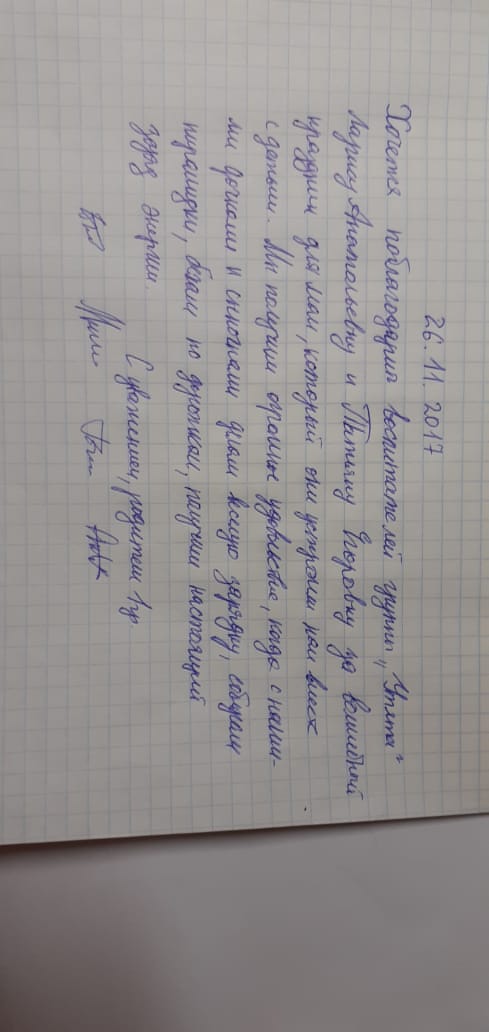 26.11.2017
Хочется поблагодарить воспитателей группы "Улыбка"
Ларису Анатольевну и Татьяну Егоровну за волшебный
праздник для мам, который они устроили нам вместе
с детьми. Мы получили огромное удовольствие, когда с наши-
ми дочками и сыночками делали веселую зарядку, собирали
пирамидки, бегали по дорожкам, получили настоящий
заряд энергии.
С уважением, родители 1 гр.